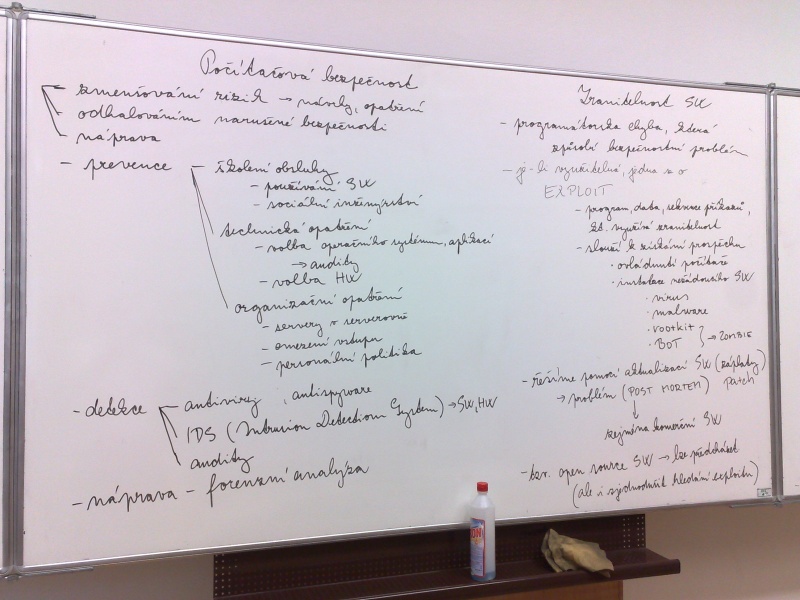 Počítačová bezpečnost
zmenšování rizik → návyky, opatření
odhalováním narušené bezpečnosti
náprava
- prevence - školení obsluhy
- používání SW
- sociální inženýrství
technická opatření
- volba operačního systému, aplikací
→ audity
- volba HW
organizační opatření
- servery v serverovně
- omezení vstupu
- personální politika
- detekce - antiviry, antispyware
IDS (Intrusion Detection System) → SW, HW
audity
- náprava - forenzní analýza
Zranitelnost SW
- programátorska chyba, která
způsobí bezpečnostní problém
- je-li využitelná, jedna se o
EXPLOIT
- program, data, sekvence příkazů,
kt. využívá zranitelnost
- slouží k získání prospěchu
· ovládnutí počítače
· instalace nežádoucího SW
· virus
· malware
· rootkit
· BOT } → ZOMBIE
- řešíme pomocí aktualizací SW (záplaty)
→ problém (POST MORTEM) patch
↓
zejména komerční SW
- tzv. open source SW → lze předcházet
(ale i zjednodušit hledání exploitu)